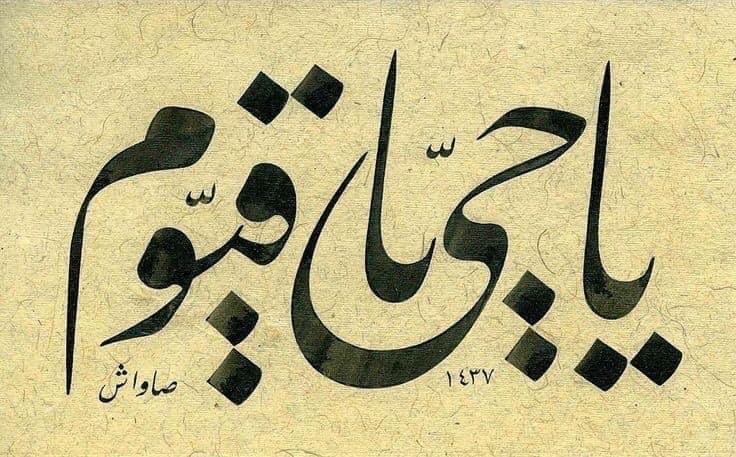 يا حيّ يا قيّوم
١٤٣٧
صاواش